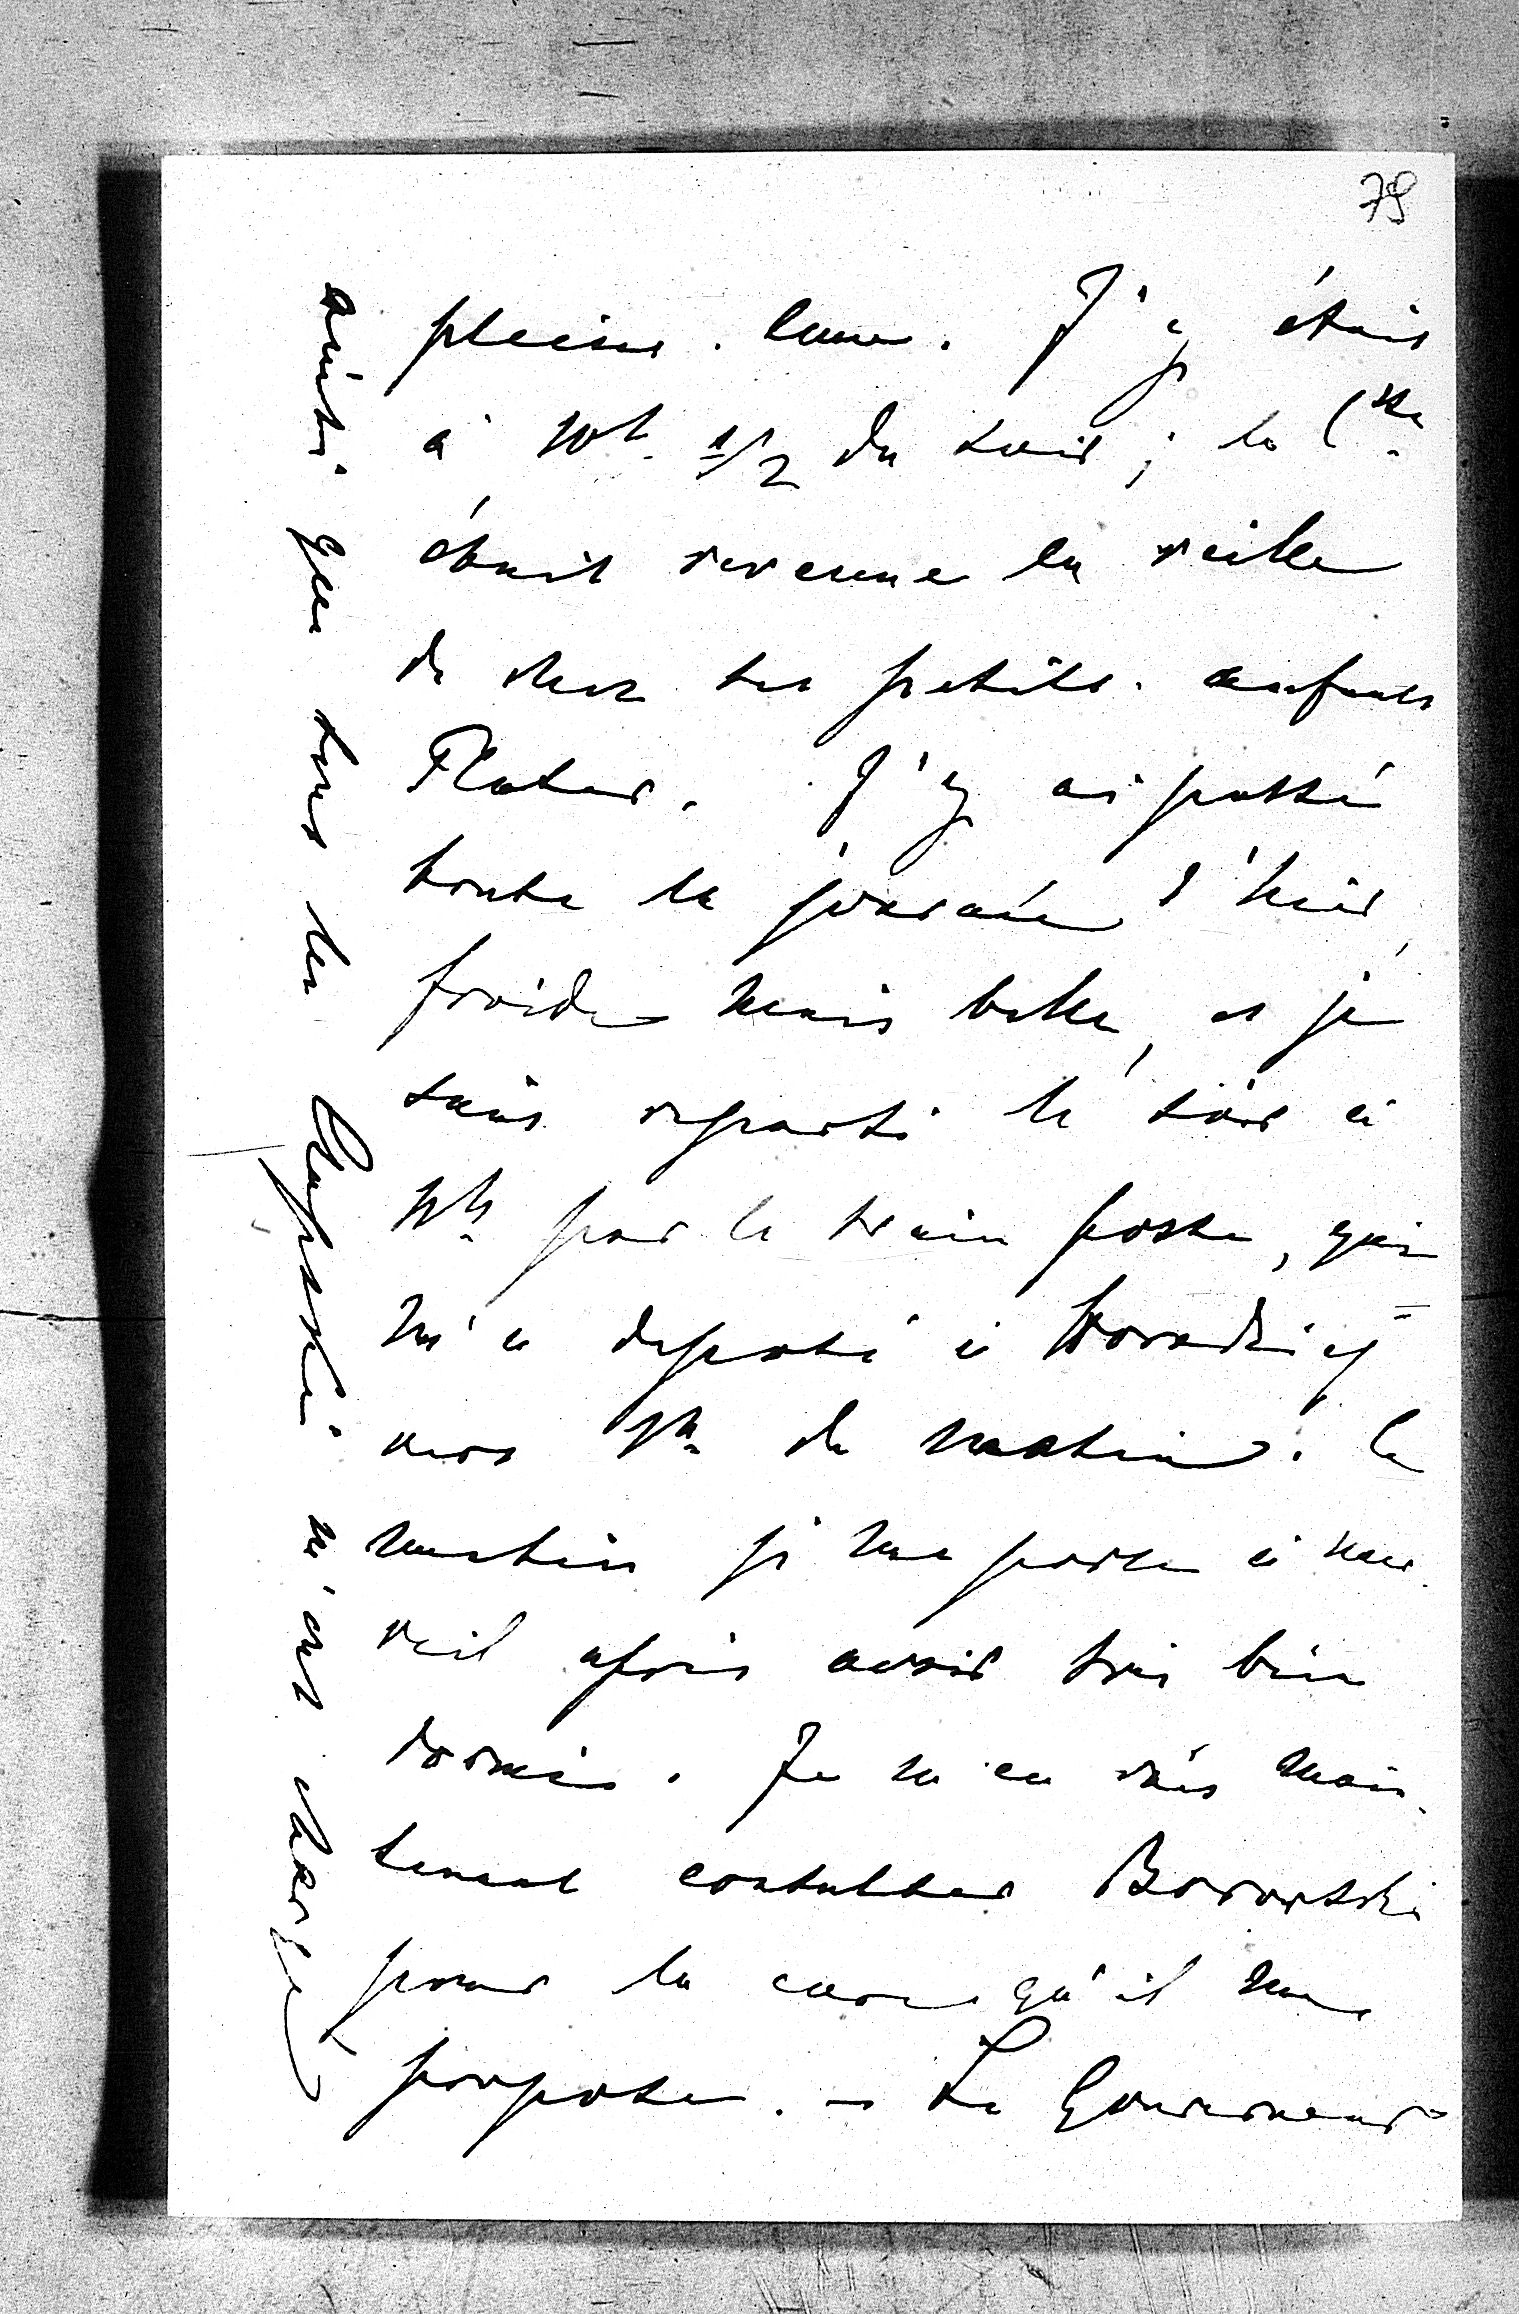 79
pleine lune. J'y étais
à 10h. 1/2 du soir; la Csse
était revenue la veille
de chez ses petits-enfants
Plater. J'y ai passé
toute la journée d'hier,
froide mais belle, et je
suis reparti le soir à
par le train poste, qui
m'a déposé à Horodziej
vers du matin. Ce
matin je me porte à mer
veil après avoir très bien
dormi. Je m'en vais main
tenant consulter Borowski
pour la cure qu'il me
propose. – Le Gouverneur
que tous les n'ont